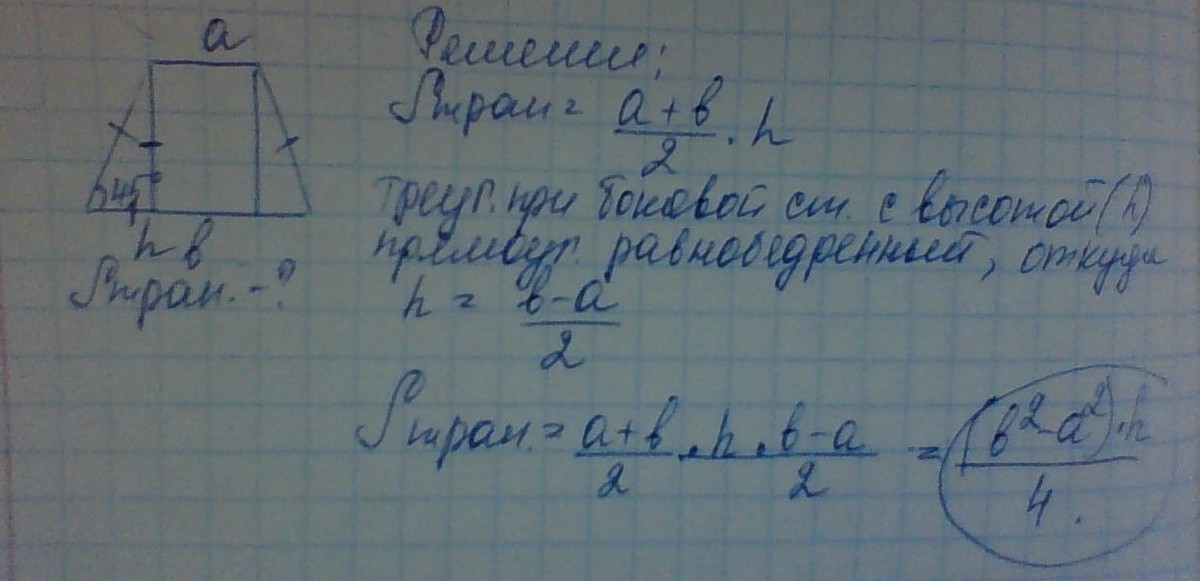 a
45
h в
Sтрап. - ?
Решение:
Sтрап = a + в / 2 · h
треуг. при боковой ст. с высотой (h)
прямоуг. равнобедренный, откуда
h = в - a / 2
Sтрап. = a + в / 2 · h · в - a / 2 = (в² - a²) · h / 4.